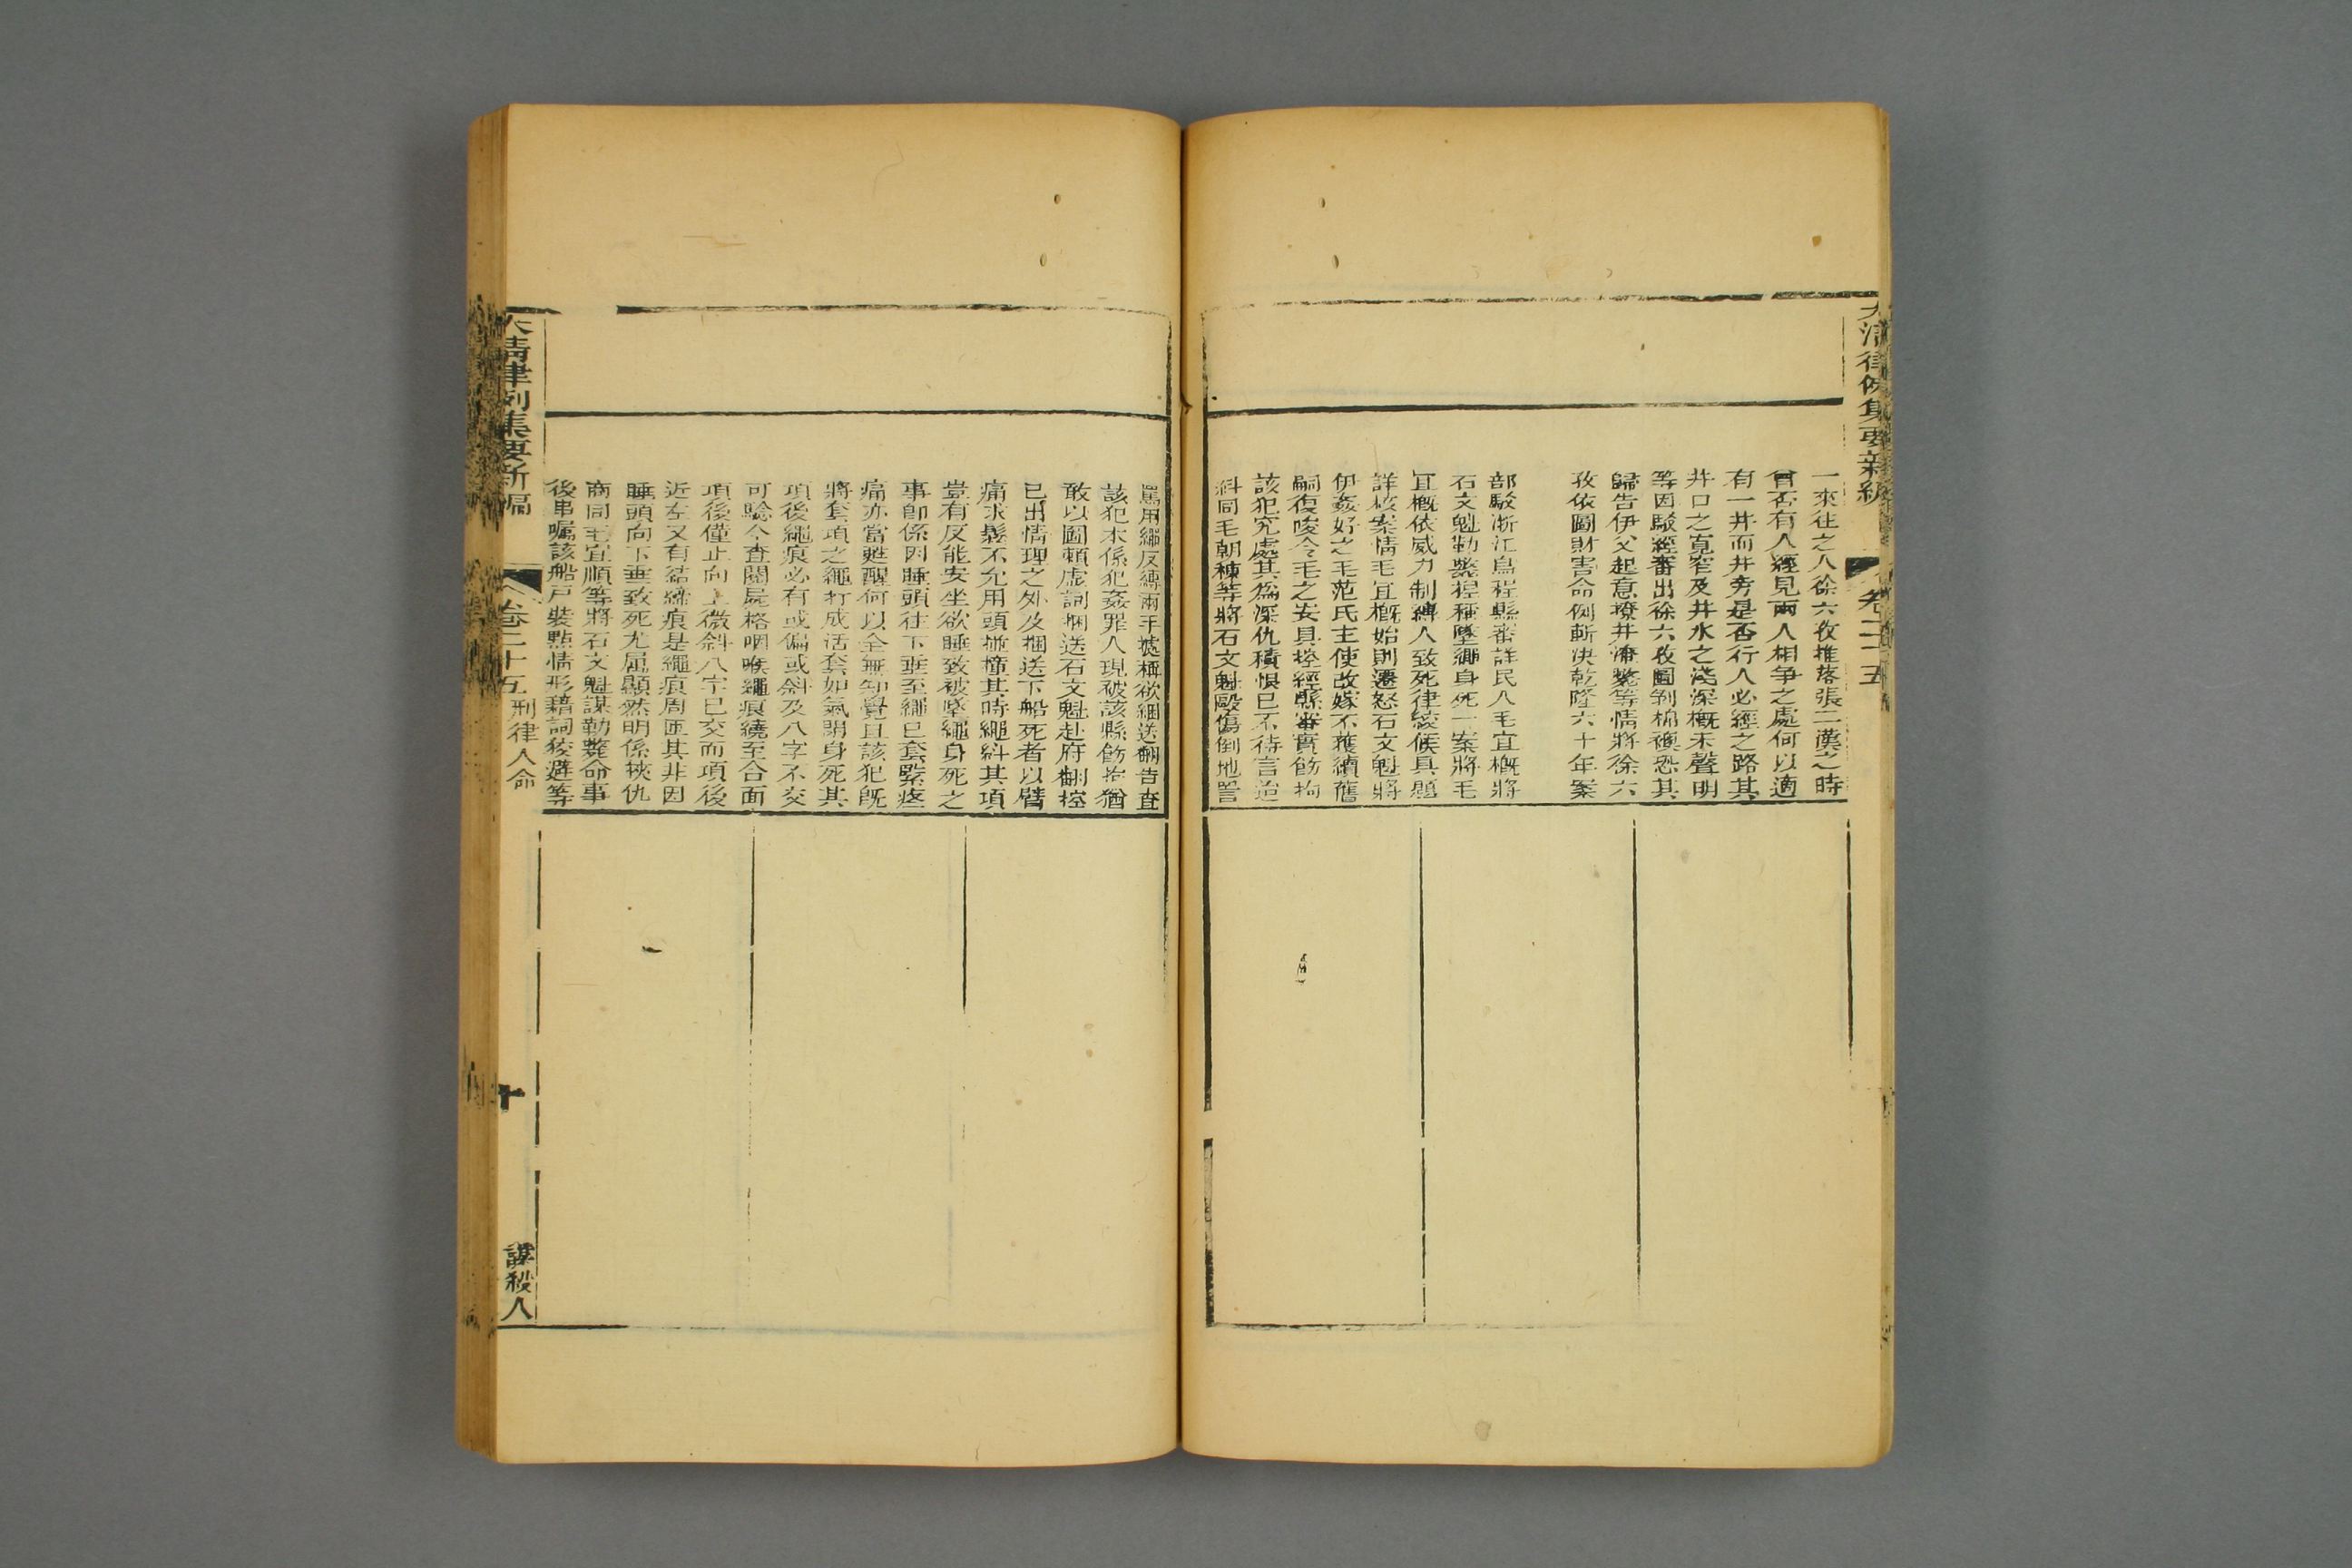 大清律例集要新編
卷二十五
一來往之人徐六孜推落張二漢之時
曾否有人經見兩人相爭之處何以適
有一井而井旁是否行人必經之路其
井口之寬窄及井水之淺深概未聲明
等因駁經審出徐六孜圖剝棉襖恐其
歸告伊父起意撩井淹斃等情將徐六
孜依圖財害命例斬決乾隆六十年案
部駁浙江烏程縣審詳民人毛宜概將
石文魁勒斃捏稱墜繩身死一案將毛
宜概依威力制縛人致死律絞候具題
詳核案情毛宜概始則遷怒石文魁將
伊姦好之毛范氏主使改嫁不獲續舊
嗣復唆令毛之安具控經縣審實飭拘
該犯究處其為深仇積恨已不待言迨
糾同毛朝棟等將石文魁毆傷倒地詈
罵用繩反縛兩手據稱欲綑送翻告查
該犯本係犯姦罪人現被該縣飭拘猶
敢以圖賴虛詞捆送石文魁赴府翻控
已出情理之外及捆送下船死者以臂
痛求鬆不允用頭碰撞其時繩糾其項
豈有反能安坐欲睡致被墜繩身死之
事卽係因睡頭往下垂至繩已套緊疼
痛亦當甦醒何以全無知覺且該犯旣
將套項之繩打成活套如氣閉身死其
項後繩痕必有或偏或斜及八字不交
可驗今查閱屍格咽喉繩痕繞至合面
項後僅止向上微斜八字已交而項後
近左又有結締痕是繩痕周匝其非因
睡頭向下垂致死尤屬顯然明係挾仇
商同毛宜順等將石文魁謀勒斃命事
後串囑該船戶裝點情形藉詞狡避等
大清律例集要新編
卷二十五 刑律人命
十
謀殺人